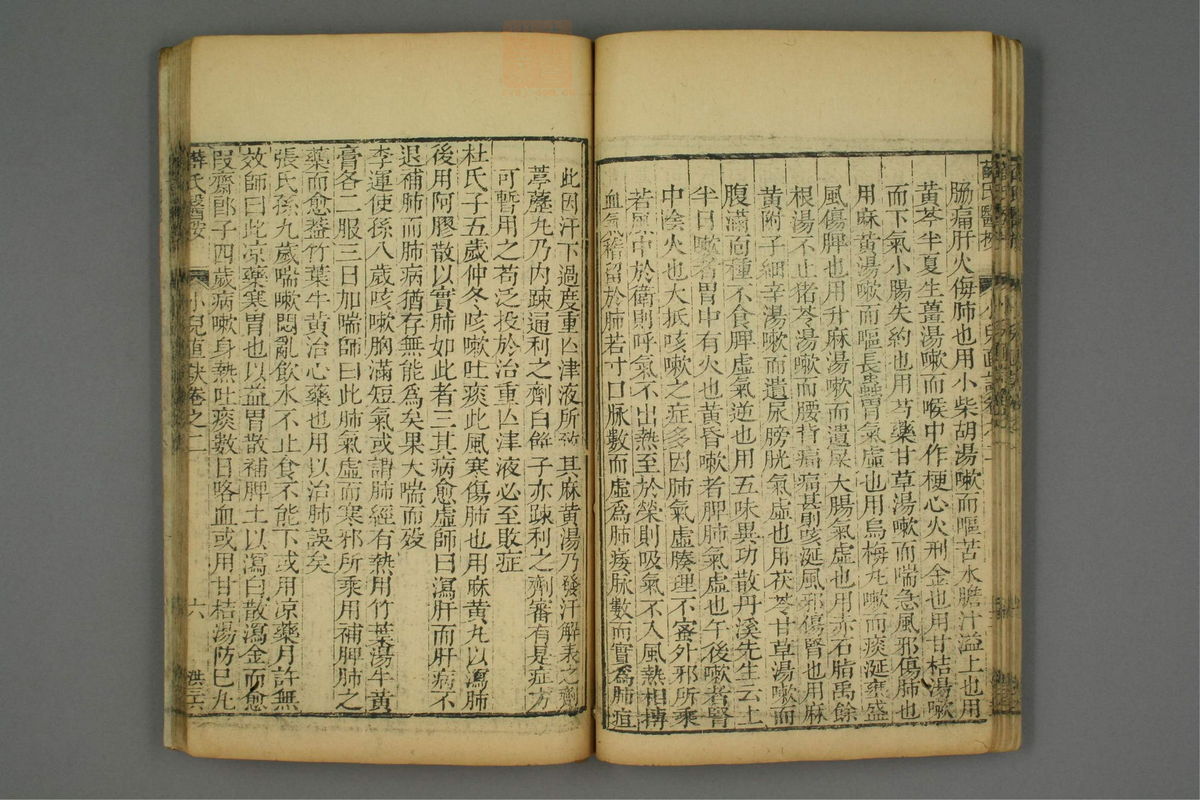 薛氏醫按
腸痛肝火侮肺也用小柴胡湯嗽而嘔苦水膽汁溢上也用
黃芩半夏生薑湯嗽而喉中作梗心火刑金也用甘桔湯嗽
而下氣小腸失約也用芍藥甘草湯嗽而喘急風邪傷肺也
用麻黃湯嗽而嘔長蟲胃氣虛也用烏梅丸嗽而痰涎壅盛
風傷脾也用升麻湯嗽而遺屎大腸氣虛也用赤石脂禹餘
根湯不止猪苓湯嗽而腰背痛痛甚則咳涎風邪傷腎也用麻
黃附子細辛湯嗽而遺尿膀胱氣虛也用茯苓甘草湯嗽而
腹滿面種不食脾虛氣逆也用五味異功散丹溪先生云上
半日嗽者胃中有火也黃昏嗽者脾肺氣虛也午後嗽者腎
中陰火也大抵咳嗽之症多因肺氣虛腠理不密外邪所乘
若風中於衛則呼氣不出熱至於榮則吸氣不入風熱相搏
血氣稽留於肺若寸口脉數而虛為肺痿脉數而實為肺疽
此因汗下過度重亡津液所致其麻黃湯乃發汗解表之劑
葶藶丸乃內疎通利之劑白餅子亦疎利之劑審有是症方
可暫用之苟泛投於治重亡津液必至敗症
杜氏子五歲仲冬咳嗽吐痰此風寒傷肺也用麻黃丸以瀉肺
後用阿膠散以實肺如此者三其病愈虛師曰瀉肝而肝病不
退補肺而肺病猶存無能為矣果大喘而歿
李運使孫八歲咳嗽胸滿短氣或謂肺經有熱用竹葉湯牛黃
膏各二服三日加喘師曰此肺氣虛而寒邪所乘用補脾肺之
藥而愈葢竹葉牛黃治心藥也用以治肺誤矣
張氏孫九歲喘嗽悶亂飲水不止食不能下或用凉藥月許無
效師曰此凉藥寒胃也以益胃散補脾土以瀉白散瀉金而愈
叚齋郎子四歲病嗽身熱吐痰數日略血或用甘桔湯防巳丸
薛氏醫按 小兒直訣卷之二 六 洪